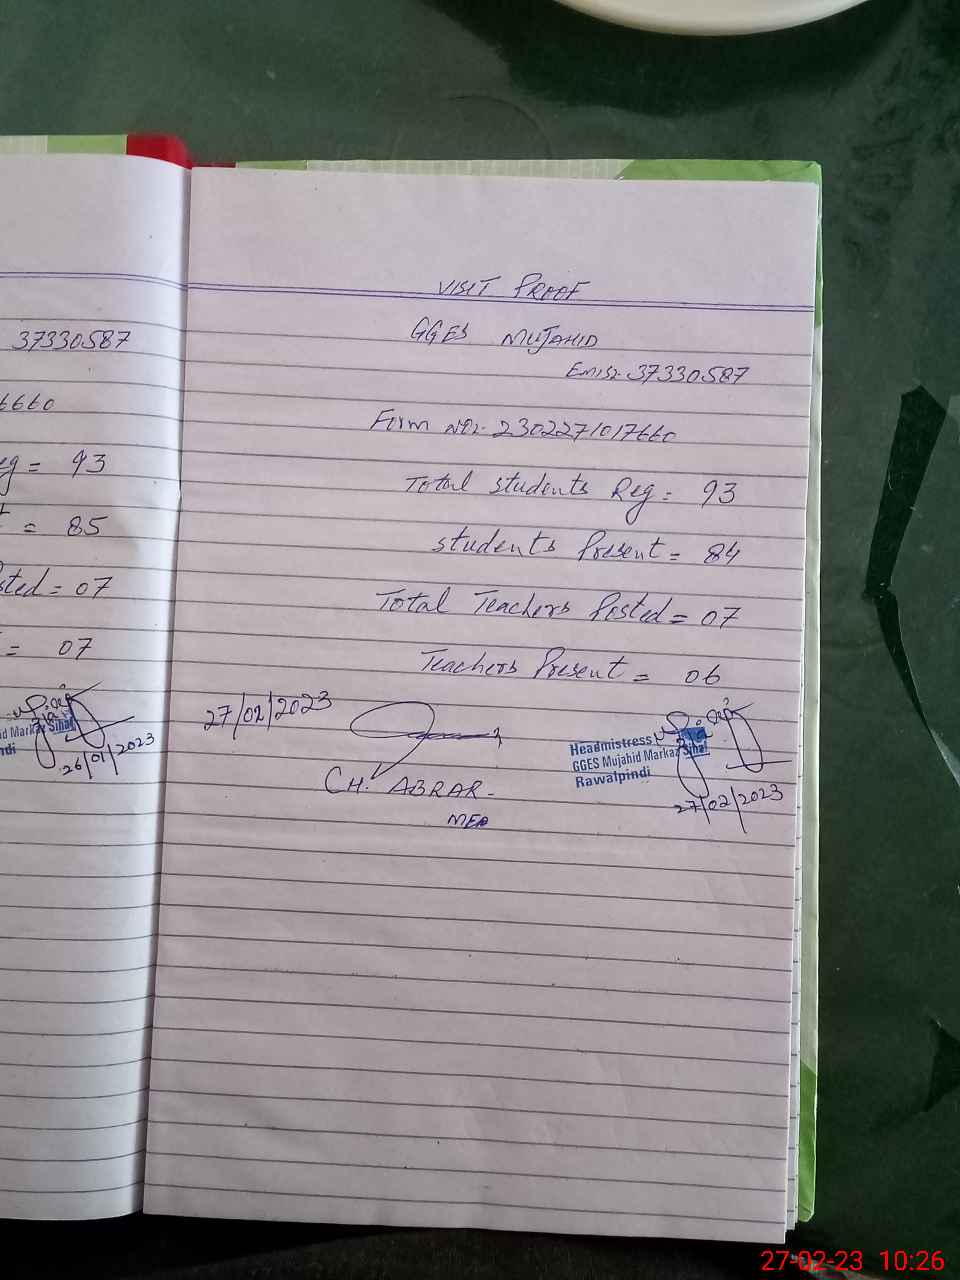 37330587
6660
eg = 93
= 85
sted = 07
= 07
id Markaz Sihal
ndi
26/01/2023
VISIT PROOF
GGES MUJAHID
EMIS:- 37330587
Form No:- 2302271017660
Total Students Reg = 93
Students Present = 84
Total Teachers Posted = 07
Teachers Present = 06
27/02/2023
CH. ABRAR-
MEA
Headmistress
GGES Mujahid Markaz Sihal
Rawalpindi
27/02/2023
27-02-23 10:26